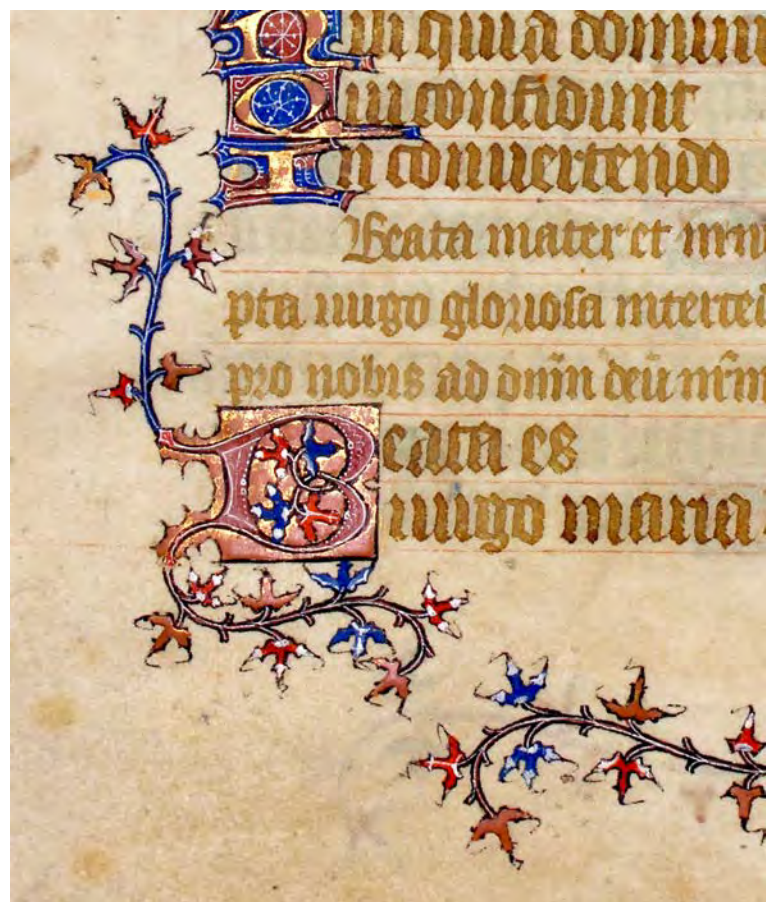 Nisi quia domin
Qui confidunt
In convertendo
Beata mater et innu
pta uirgo gloriosa interced
pro nobis ad dn̄m deū nr̄m
Beata es
uirgo maria